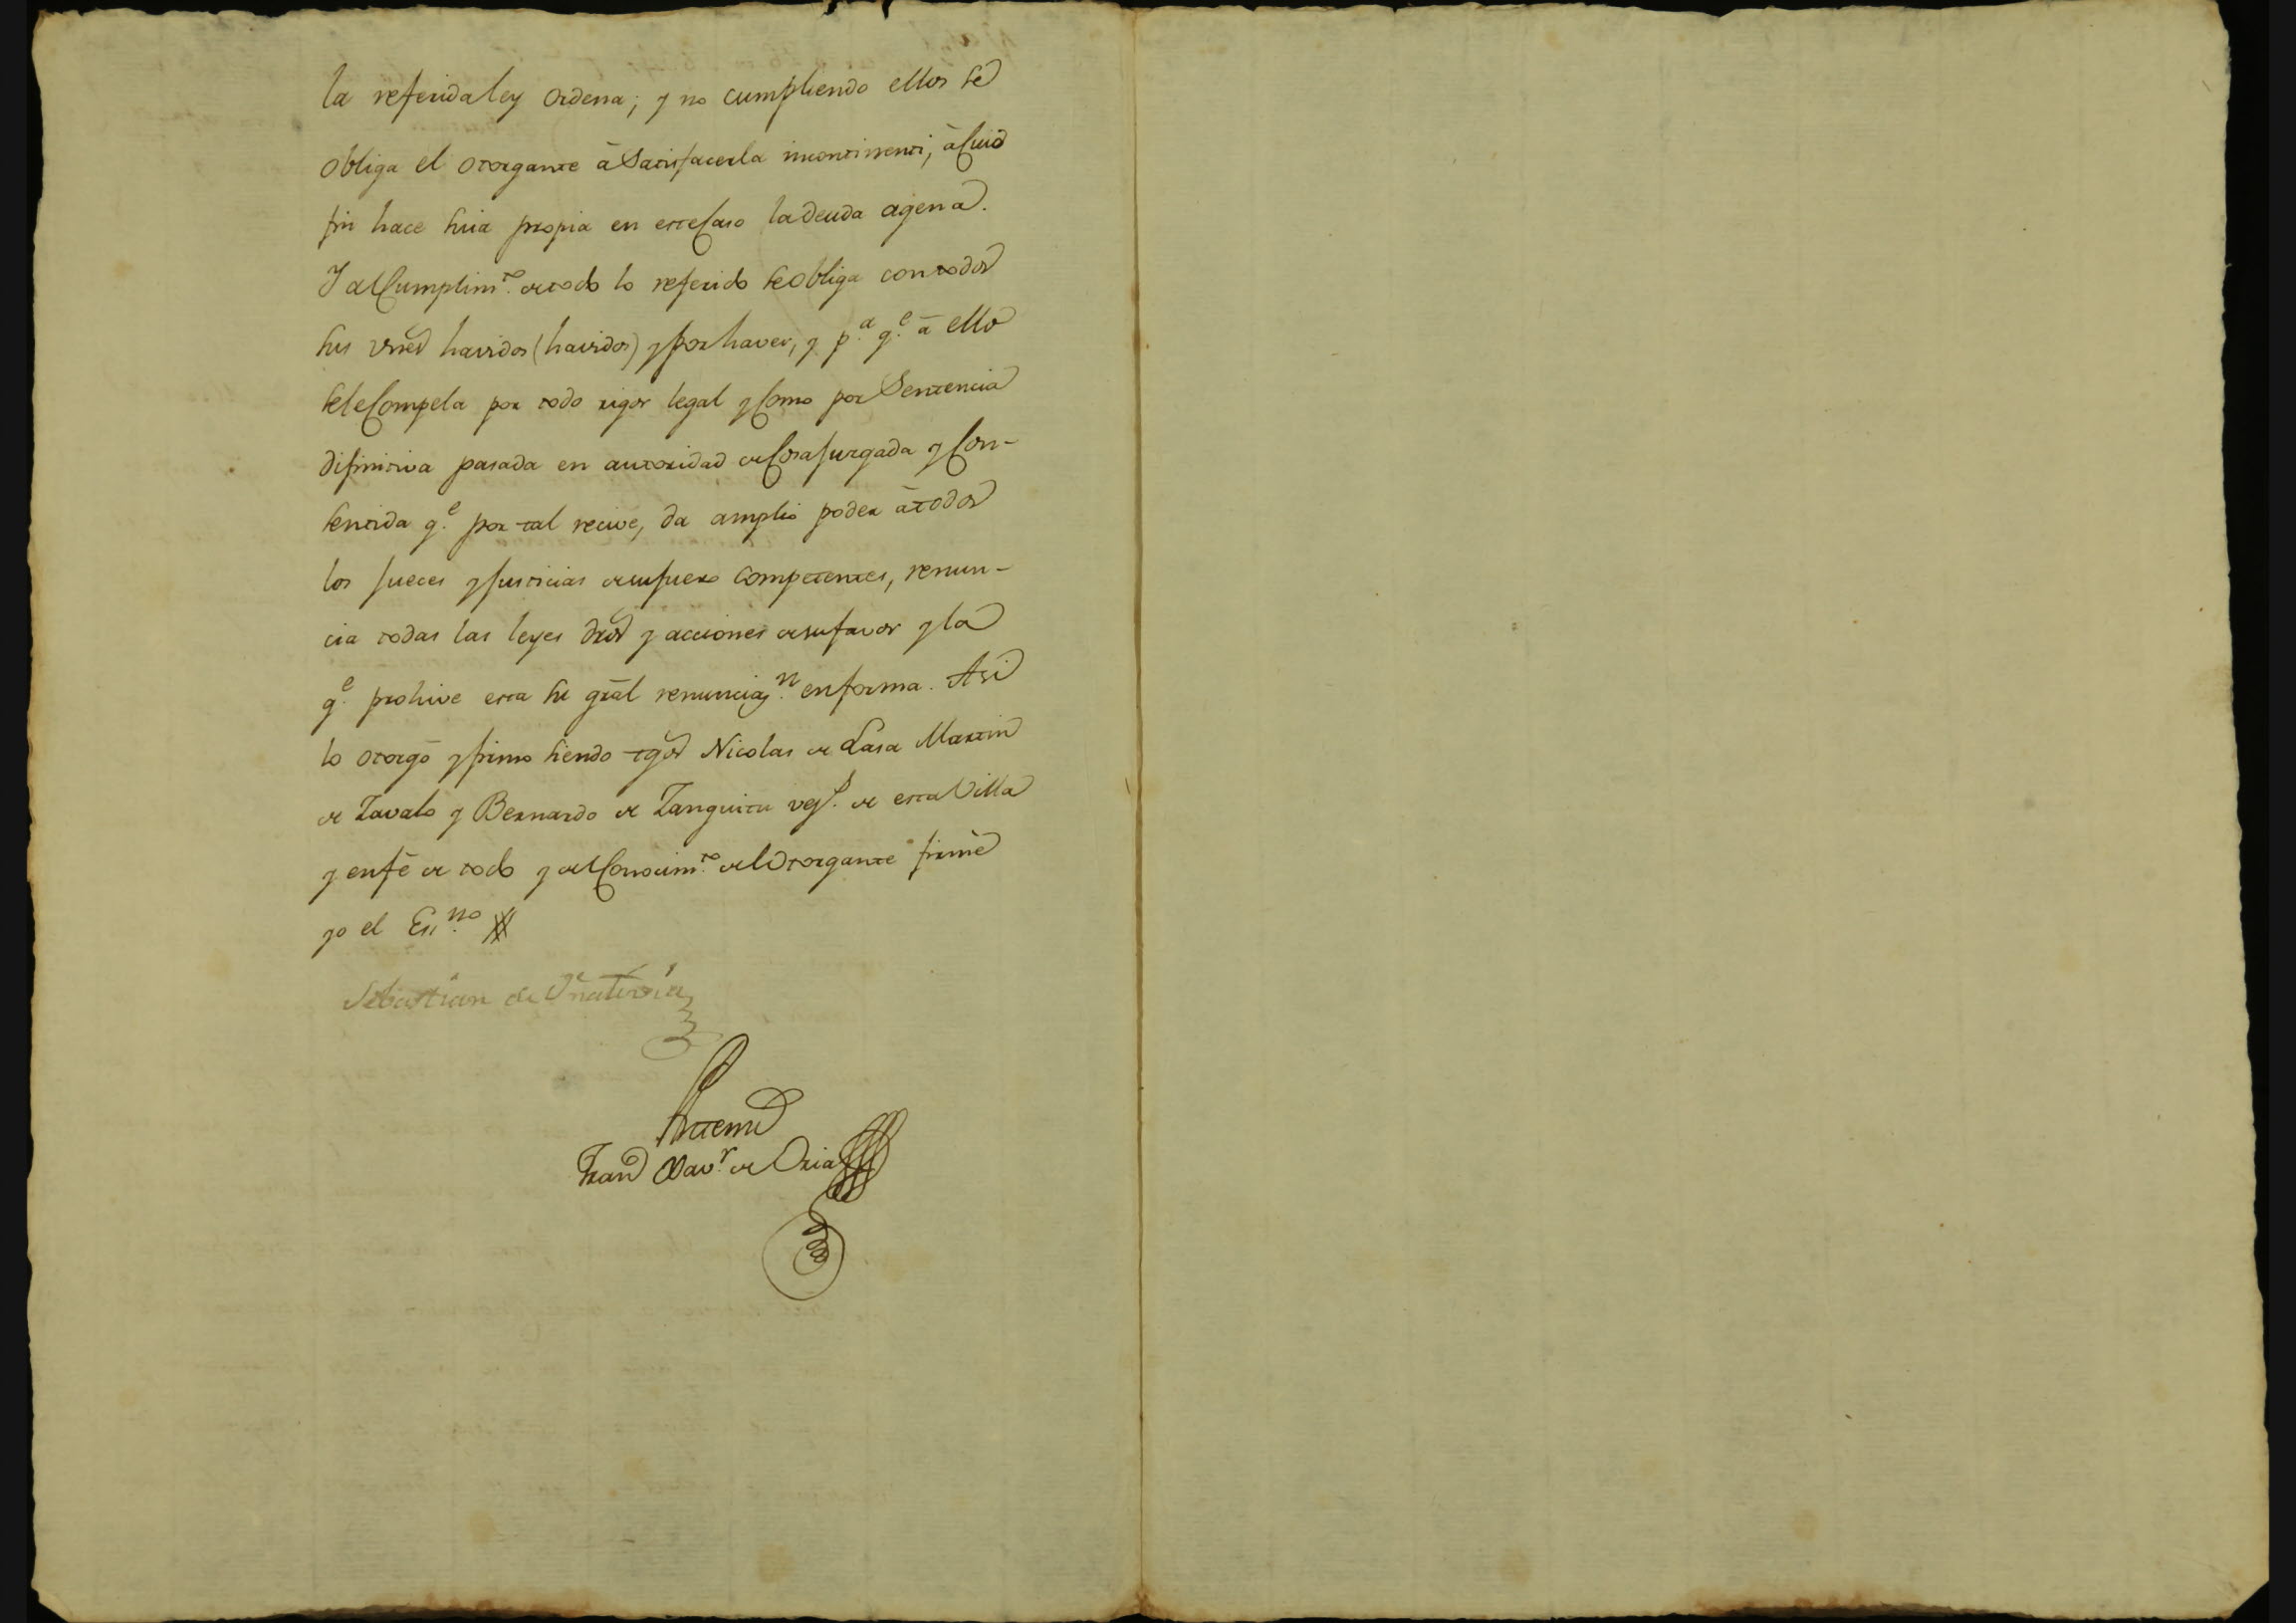 la referida ley ordena; y no cumpliendo ellos se
obliga el otorgante â Satisfacerla incontinenti, â Cuio
fin hace suia propia en este Caso la deuda agena.
Y al Cumplim.to de todo lo referido se obliga con todos
sus vnes havidos (havidos) y por haver, y p.a q.e â ello
se le Compela por todo rigor legal y Como por Sentencia
difinitiva pasada en autoridad de Cosa Juzgada y Con-
sentida q.e por tal recive, da amplio poder â todos
los Jueces y Justicias de su fuero competentes, renun-
cia todas las leyes dros y acciones de su favor y la
q.e prohive esta su gral renunciaz.n en forma. Asi
lo otorgô y firmo siendo tgos Nicolas de Lasa Martin
de Zavalo y Bernardo de Zanguitu vez.s de esta Villa
y en fê de todo y del Conocim.to del Otorgante firmê
yo el Es.no
Sebastian de
Antemi
Fran.co Xav.r de Oria